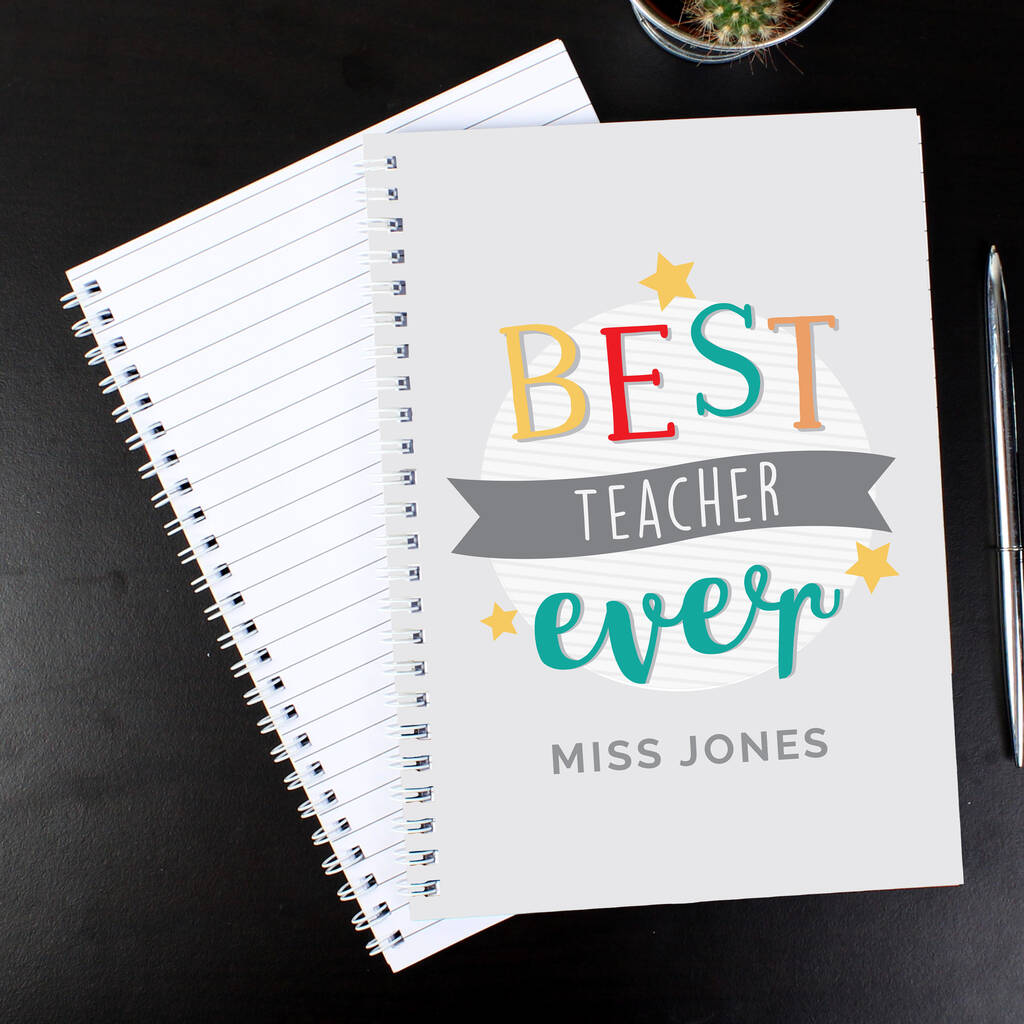 BEST
TEACHER
ever
MISS JONES